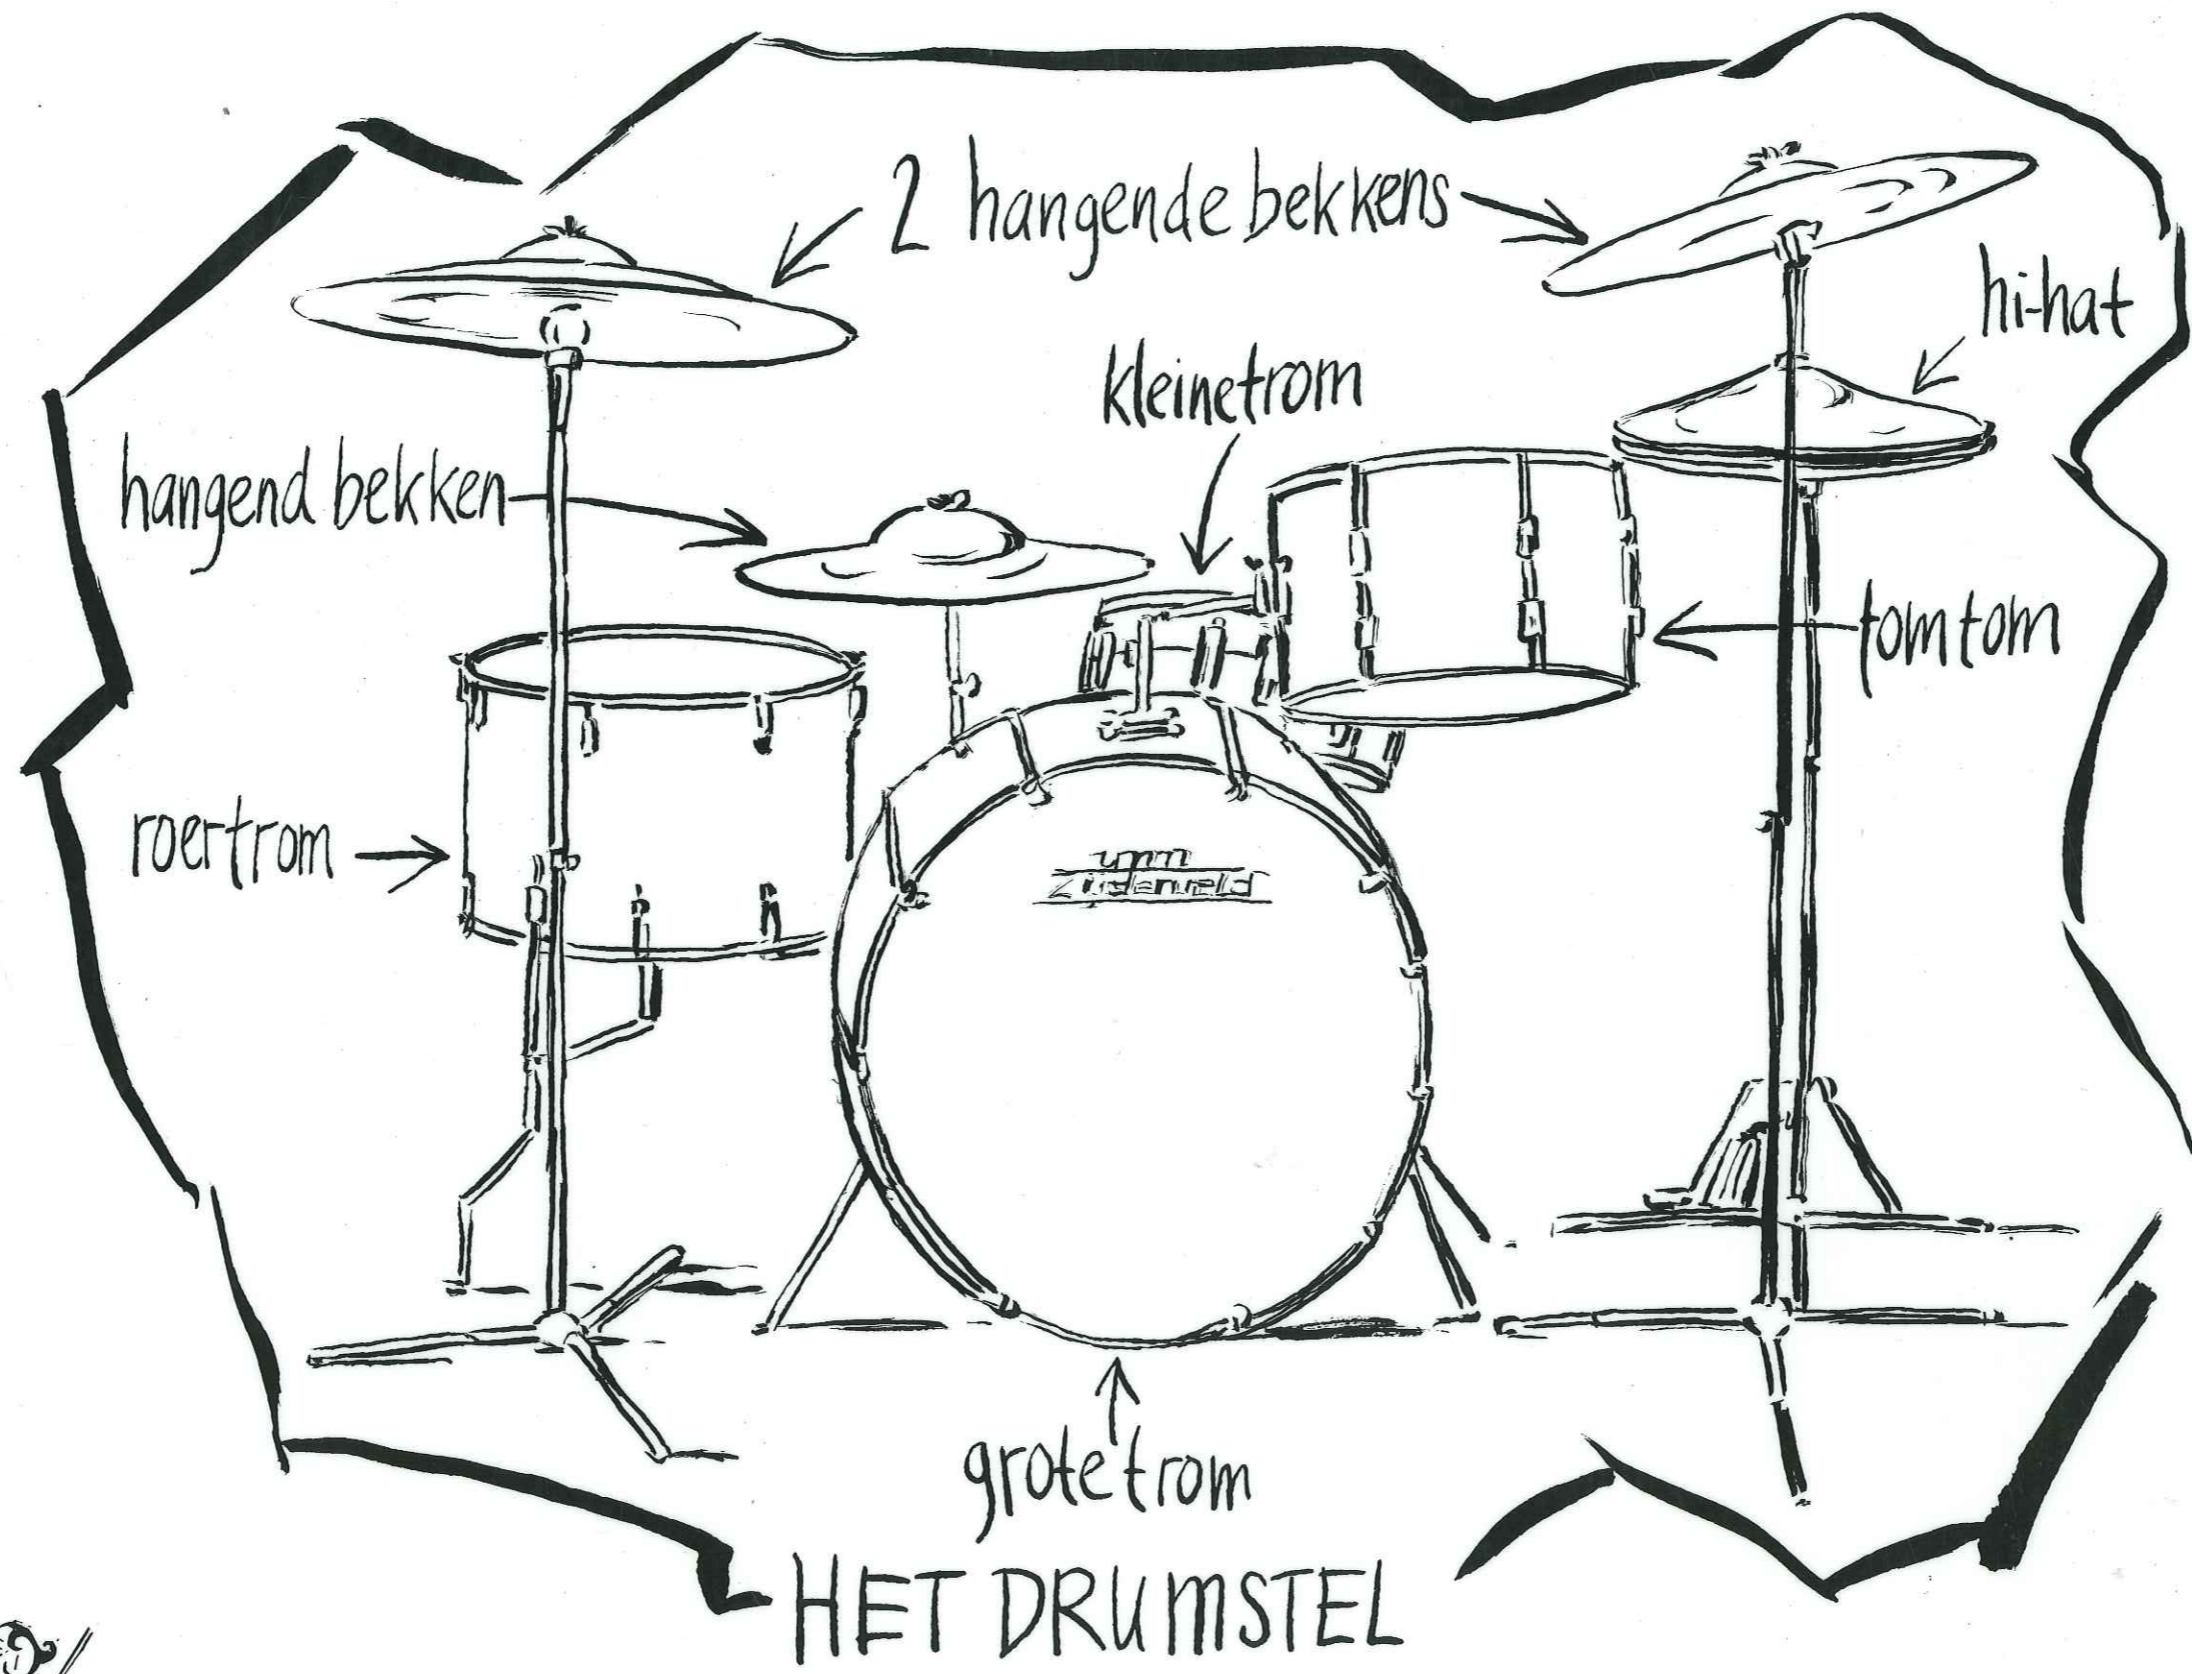 2 hangende bekkens
hi-hat
kleinetrom
hangend bekken
tomtom
roertrom
grotetrom
HET DRUMSTEL